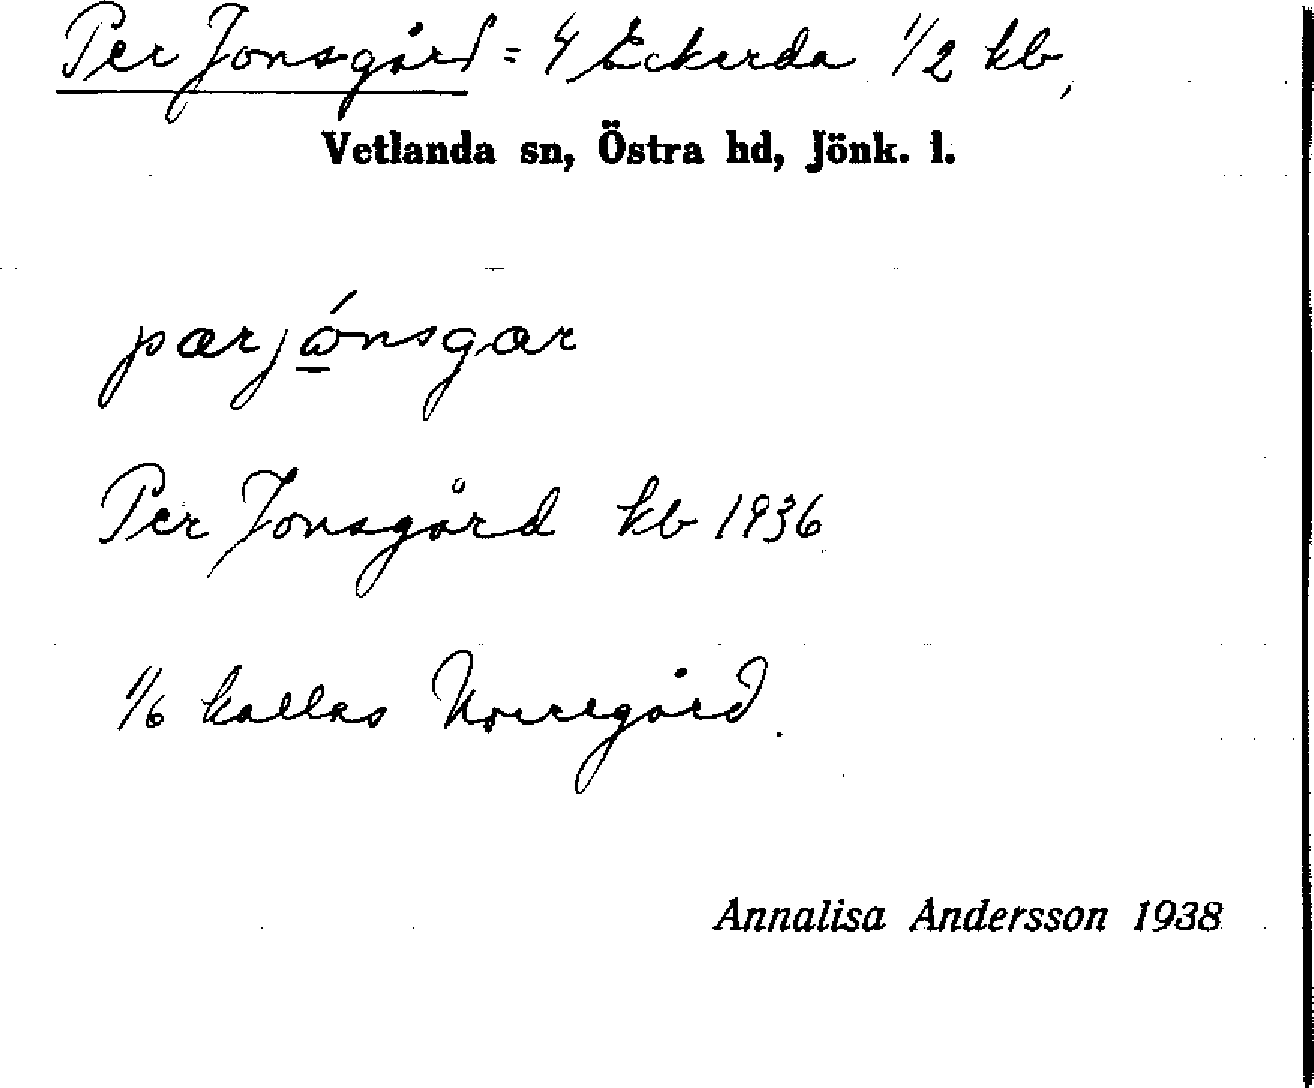 Per Jonsgård = 4 Eckerda 1/2 kb,
Vetlanda sn, Östra hd, Jönk. l.
pærjónsgær
Per Jonsgård kb 1936
1/6 kallas Norregård.
Annalisa Andersson 1938